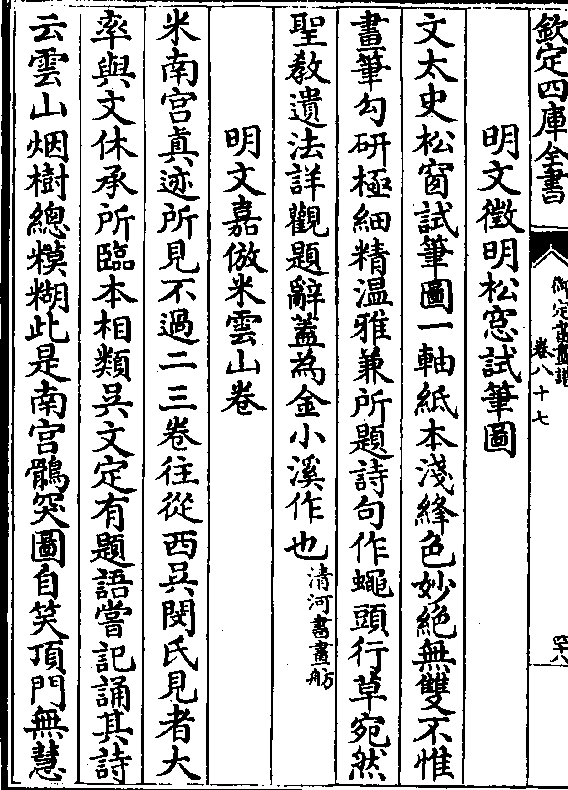 欽定四庫全書
御定書畫譜
卷八十七
四八
明文徵明松窓試筆圖
文太史松窗試筆圖一軸紙本淺絳色妙絶無雙不惟
畫筆勾研極細精温雅兼所題詩句作蠅頭行草宛然
聖教遺法詳觀題辭蓋為金小溪作也清河書畫舫
明文嘉倣米雲山卷
米南宫真迹所見不過二三卷往從西吴閔氏見者大
率與文休承所臨本相類吴文定有題語嘗記誦其詩
云雲山烟樹總糢糊此是南宫鶻突圖自笑頂門無慧